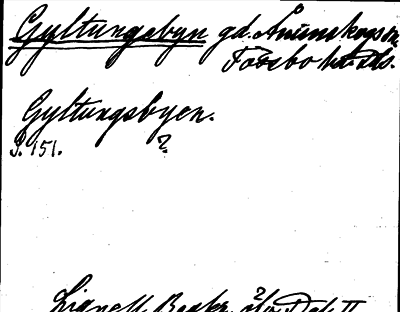 Gyltungsbyn gd. Ånimskogs sn.
Tössbo hd. Dls.
Gyltungsbyen.
S. 151. ?
Lignell Beskr. öfv. Dal. II